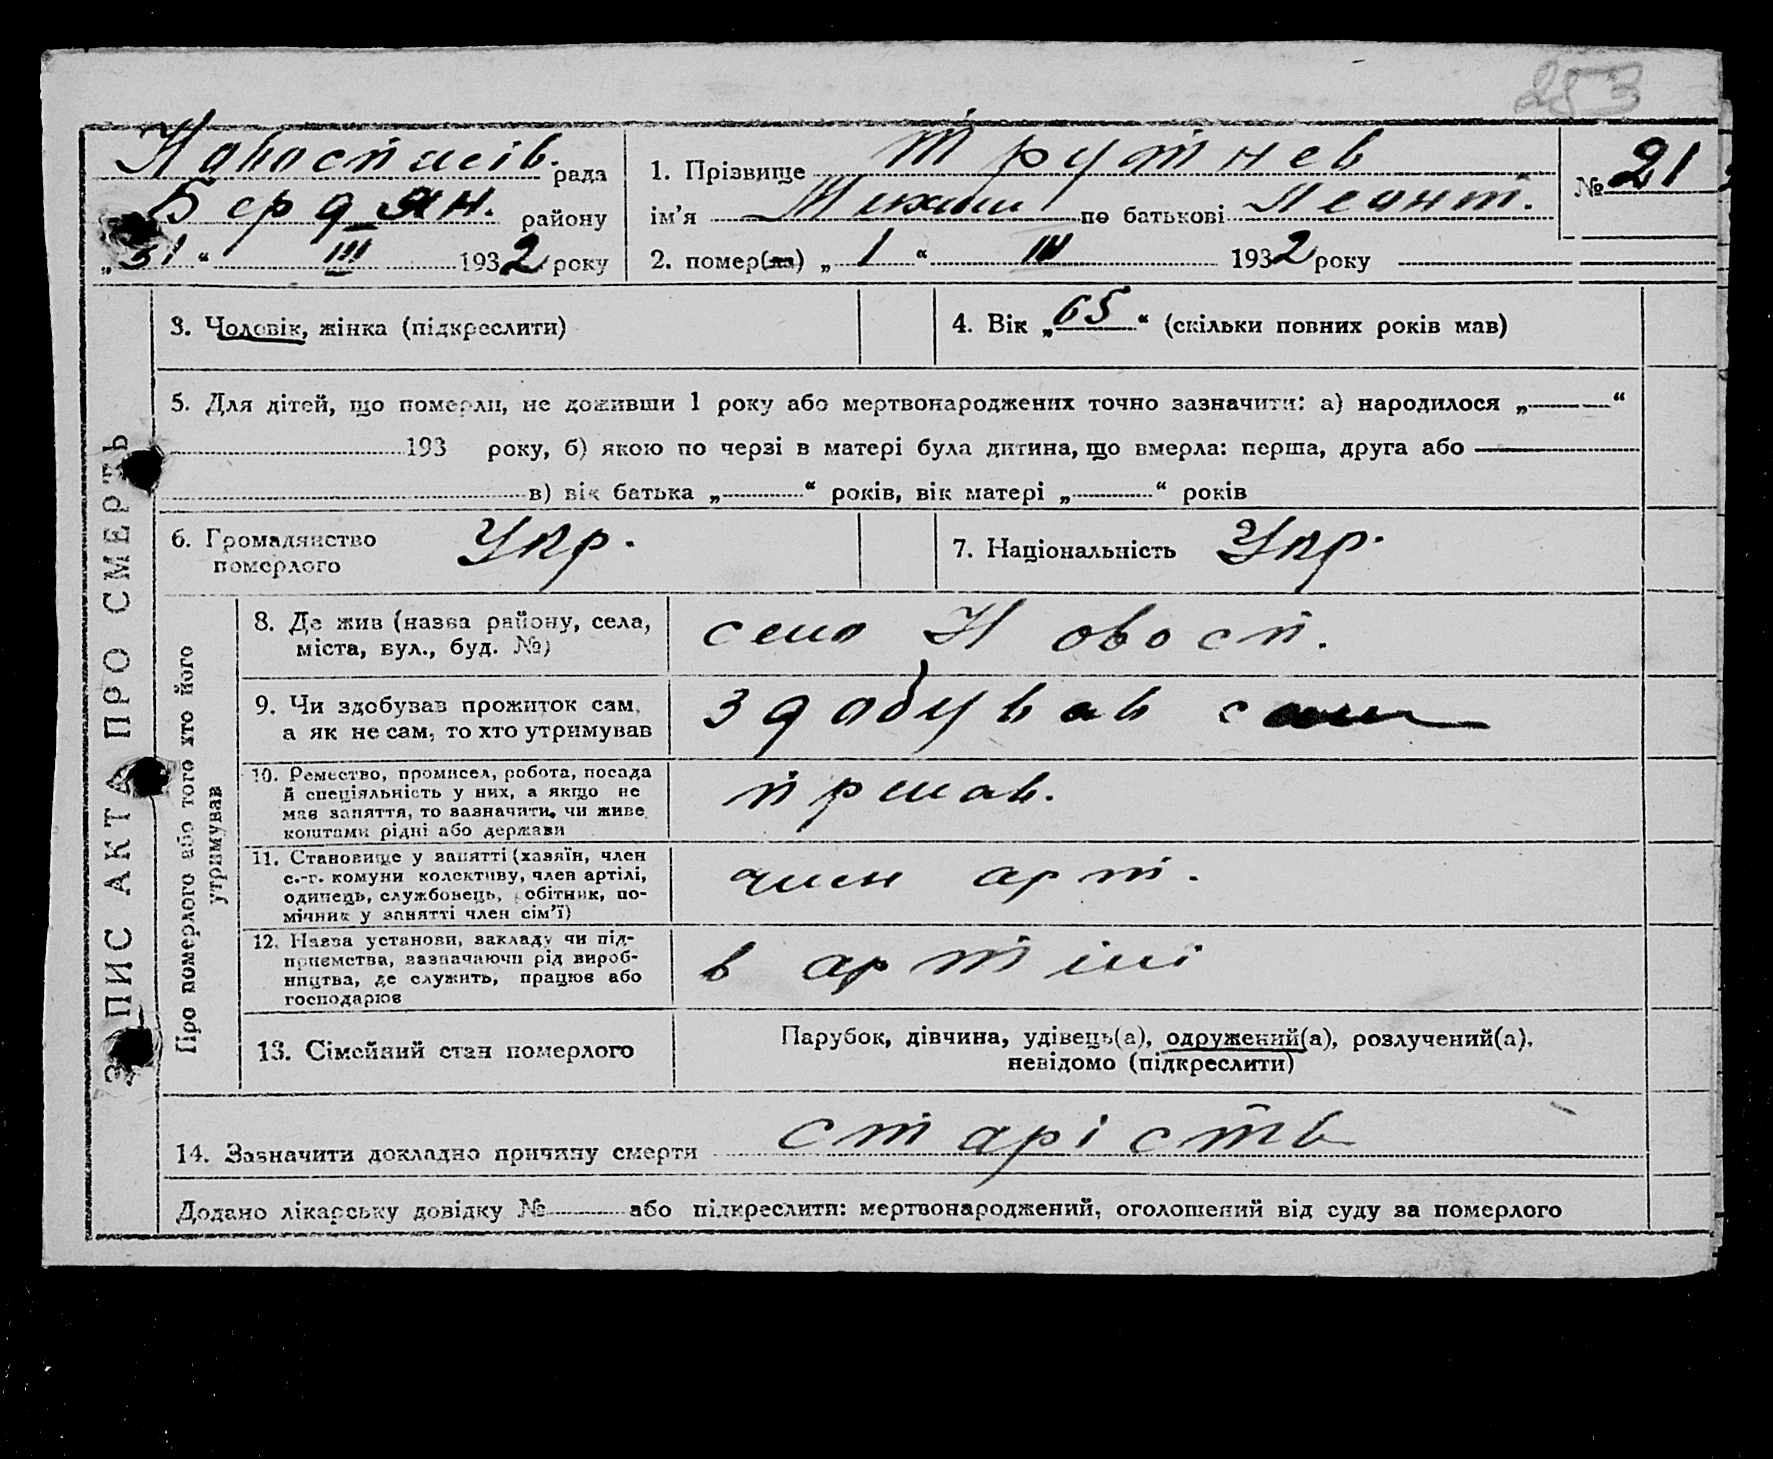 253
рада
Бердян. району
„31“ III 1932 року
1. Прізвище Трутнев
ім’я по батькові Леонт.
№ 21
2. помер(ла) „1“ 1932 року
3. Чоловік, жінка (підкреслити)
4. Вік „65“ (скільки повних років мав)
5. Для дітей, що померли, не доживши 1 року або мертвонароджених точно зазначити: а) народилося „ “
193 року, б) якою по черзі в матері була дитина, що вмерла: перша, друга або
в) вік батька „ “ років, вік матері „ “ років
6. Громадянство
померлого
Укр.
7. Національність Укр.
ЗАПИС АКТА ПРО СМЕРТЬ
Про померлого або того хто його
утримував
8. Де жив (назва району, села,
міста, вул., буд. №)
село Новосп.
9. Чи здобував прожиток сам,
а як не сам, то хто утримував
здобував сам
10. Ремество, промисел, робота, посада
й спеціяльність у них, а якщо не
мав заняття, то зазначити, чи живе
коштами рідні або держави
11. Становище у занятті (хазяїн, член
с.-г. комуни колективу, член артілі,
одинець, службовець, робітник, по-
мічник у занятті член сім’ї)
член арт.
12. Назва установи, закладу чи під-
приємства, зазначаючи рід вироб-
ництва, де служить, працює або
господарює
в артілі
13. Сімейний стан померлого
Парубок, дівчина, удівець(а), одружений(а), розлучений(а),
невідомо (підкреслити)
14. Зазначити докладно причину смерти старість
Додано лікарську довідку № або підкреслити: мертвонароджений, оголошений від суду за померлого